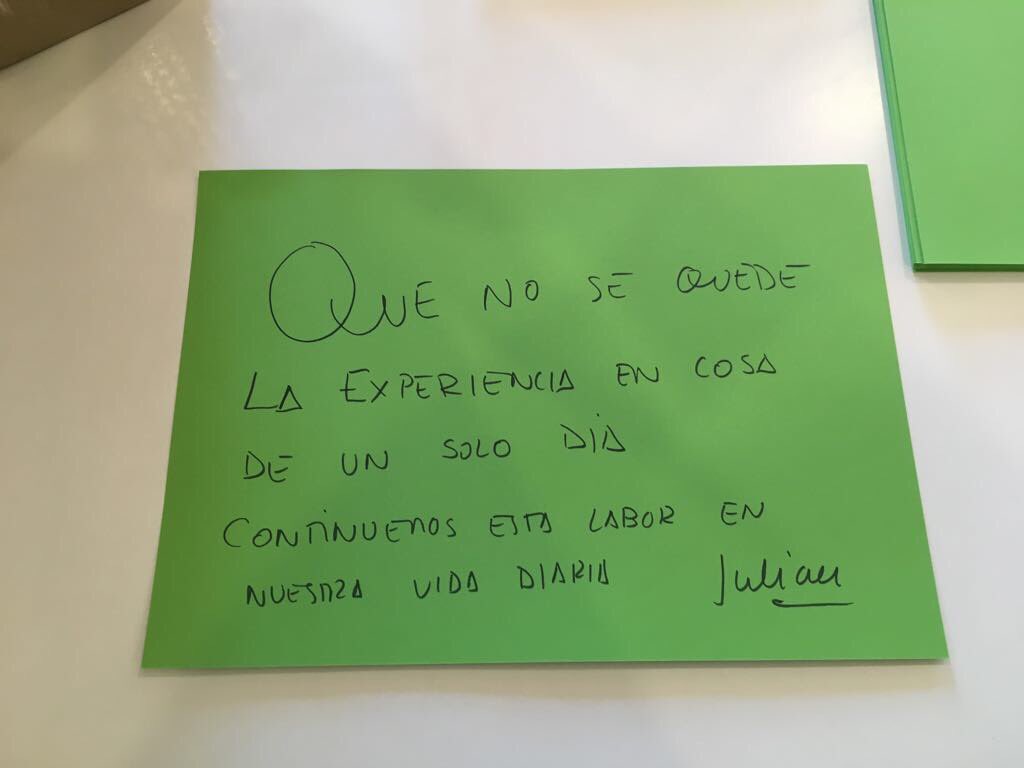 QUE NO SE QUEDE
LA EXPERIENCIA EN COSA
DE UN SOLO DIA
CONTINUEMOS ESTA LABOR EN
NUESTRA VIDA DIARIA Julian